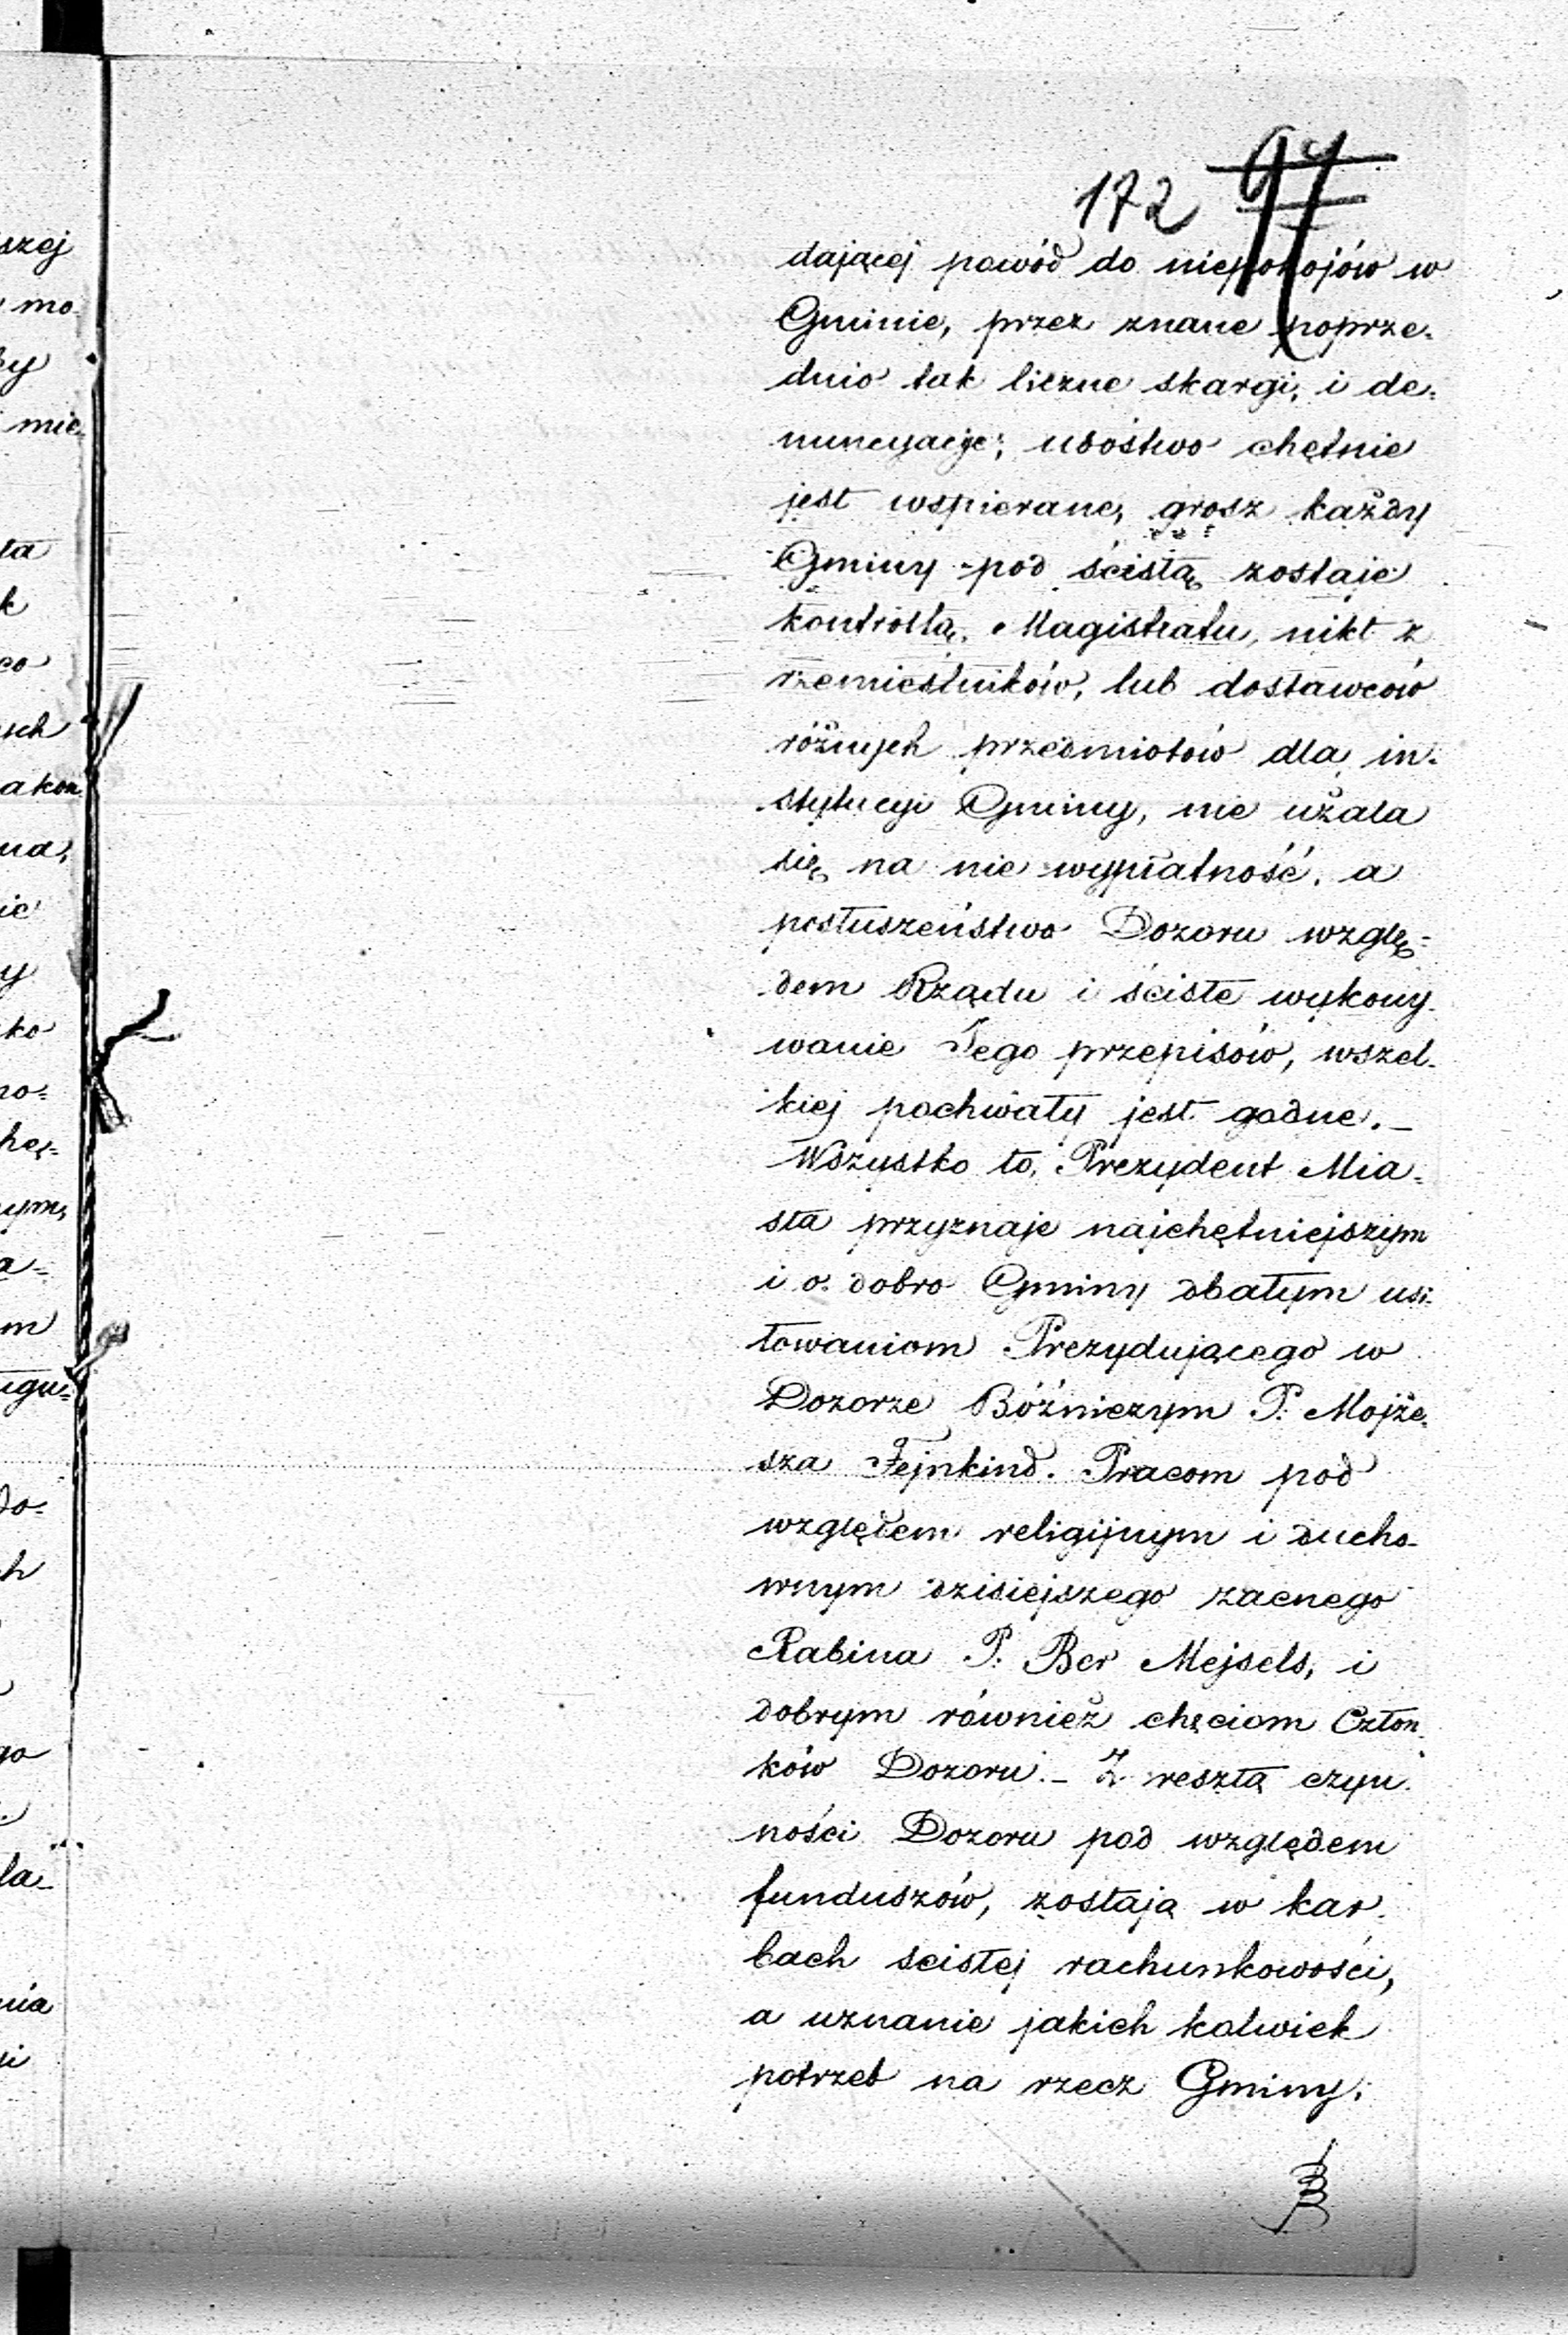 172 97
dającej powód do niepokojów w
Gminie, przez znane poprze-
dnio tak liczne skargi, i de-
nuncyacje; ubóstwo chętnie
jest wspierane, grosz każdy
Gminy pod ścisłą zostaje
kontrollą Magistratu, nikt z
rzemieślników, lub dostawców
różnych przedmiotów dla in-
stytucyi Gminy, nie użala
się na nie wypłatność, a
posłuszeństwo Dozoru wzglę-
dem Rządu i ścisłe wykony-
wanie Jego przepisów, wszel-
kiej pochwały jest godne. –
Wszystko to, Prezydent Mia-
sta przyznaje najchętniejszym
i o dobro Gminy dbałym usi-
łowaniom Prezydującego w
Dozorze Bóżniczym P. Mojże-
sza Fejnkind. Pracom pod
względem religijnym i ducho-
wnym dzisiejszego zacnego
Rabina P. Ber Mejsels, i
dobrym również chęciom Człon-
ków Dozoru. – Z resztą czyn-
ności Dozoru pod względem
funduszów, zostają w kar-
bach ścisłej rachunkowości,
a uznanie jakich kolwiek
potrzeb na rzecz Gminy,
szej
mo
by
mie-
ła
k
co
ych
akon
na,
ie
y
ko
no-
hę-
ym,
a-
m
ugu-
do-
h
go
la-
nia
i